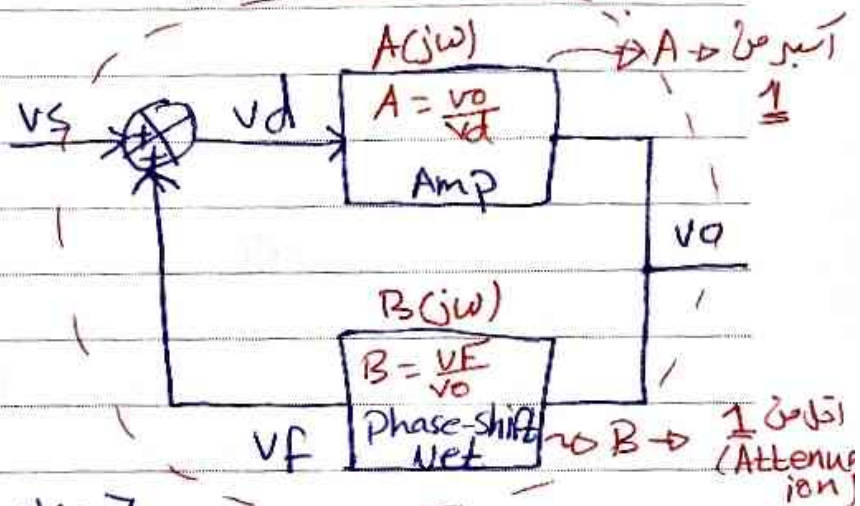 A(jω) → A → أكبر من
1
A = vo/vd
vs
vd
Amp
vo
B(jω)
B = vF/vo
Phase-shift
Net
vf
B → أقل من 1
(Attenuat
ion)